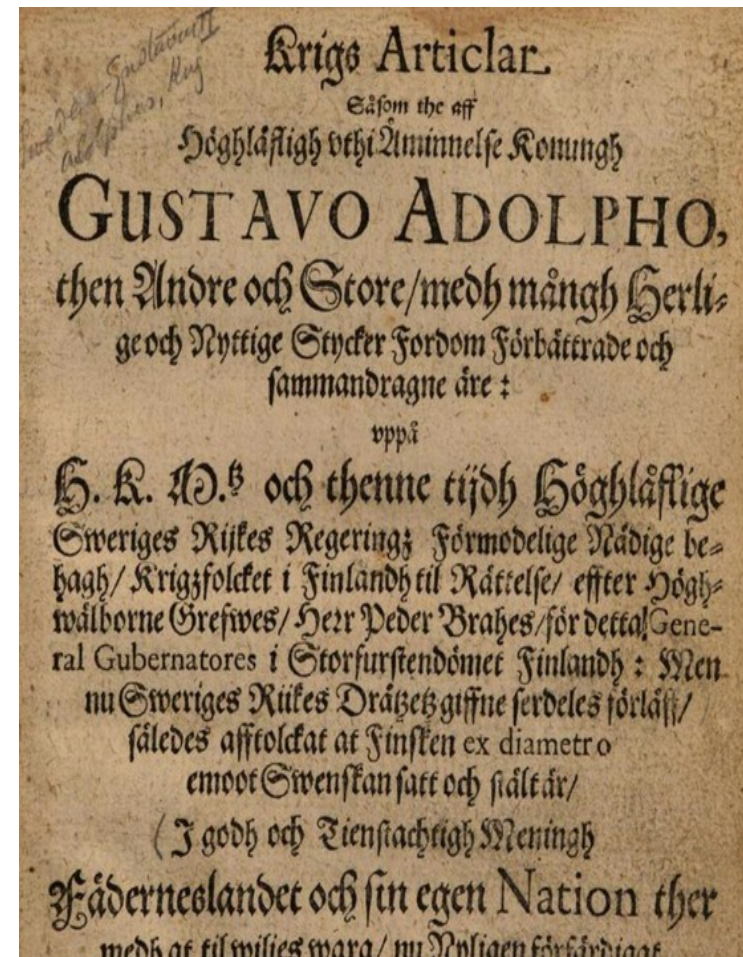 Sweden-Gustavus II
Adolphus, King
Krigs Articlar.
Såsom the aff
Höghläfligh vthi Åminnelse Konungh
GUSTAVO ADOLPHO,
then Andre och Store/medh mångh Herli-
ge och Nyttige Stycker Fordom Förbättrade och
sammandragne äre :
vppå
H. K. M.tz och thenne tijdh Höghlåflige
Sweriges Rijkes Regeringz Förmodelige Nådige be-
hagh/ Krigzfolcket i Finlandh til Rättelse/ effter Högh-
wälborne Grefwes/ Herr Peder Brahes/för detta! Gene-
ral Gubernatores i Storfurstendömet Finlandh : Men
nu Sweriges Rijkes Drätzetz giffne serdeles förläff/
således afftolckat at Finsken ex diametro
emoot Swenskan satt och stält är/
(J godh och Tienstachtigh Meningh
Fäderneslandet och sin egen Nation ther
medh at til wilies wara/ nu Nyligen förfärdigat